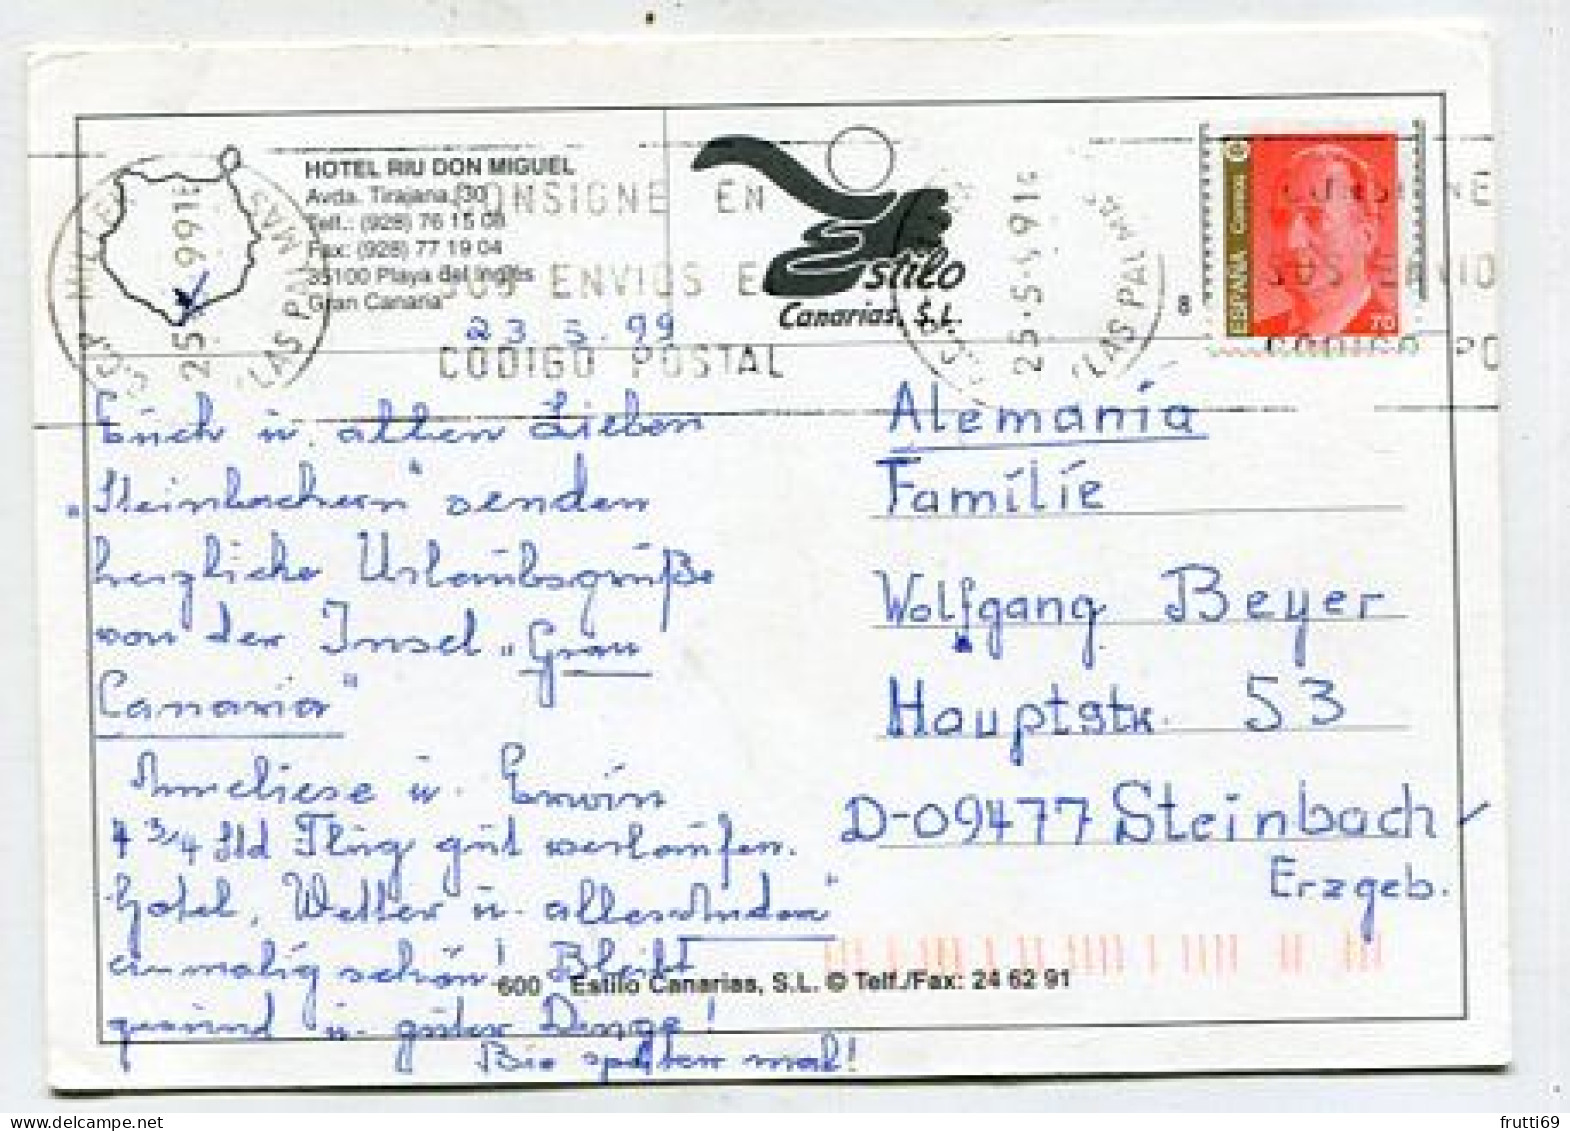 HOTEL RIU DON MIGUEL
Avda. Tirajana, 30
Telf.: (928) 76 15 08
Fax: (928) 77 19 04
35100 Playa del Inglés
Gran Canaria
Estilo
Canarias, S.L.
CONSIGNE EN
SUS ENVIOS E
CODIGO POSTAL
LAS PALMAS
25-5-99
LAS PALMAS
25-5-99
8
ESPAÑA Correos
70
23.5.99
Euch u. allen Lieben
„Steinbachern“ senden
herzliche Urlaubsgrüße
von der Insel „Gran
Canaria“
Anneliese u. Erwin
4 3/4 Std Flug gut verlaufen.
Hotel, Wetter u. alles Andere“
einmalig schön! Bleibt
gesund u. guter Dinge!
Bis später mal!
Alemania
Familie
Wolfgang Beyer
Hauptstr. 53
D-09477 Steinbach
Erzgeb.
600 Estilo Canarias, S.L. © Telf./Fax: 24 62 91
frutti69